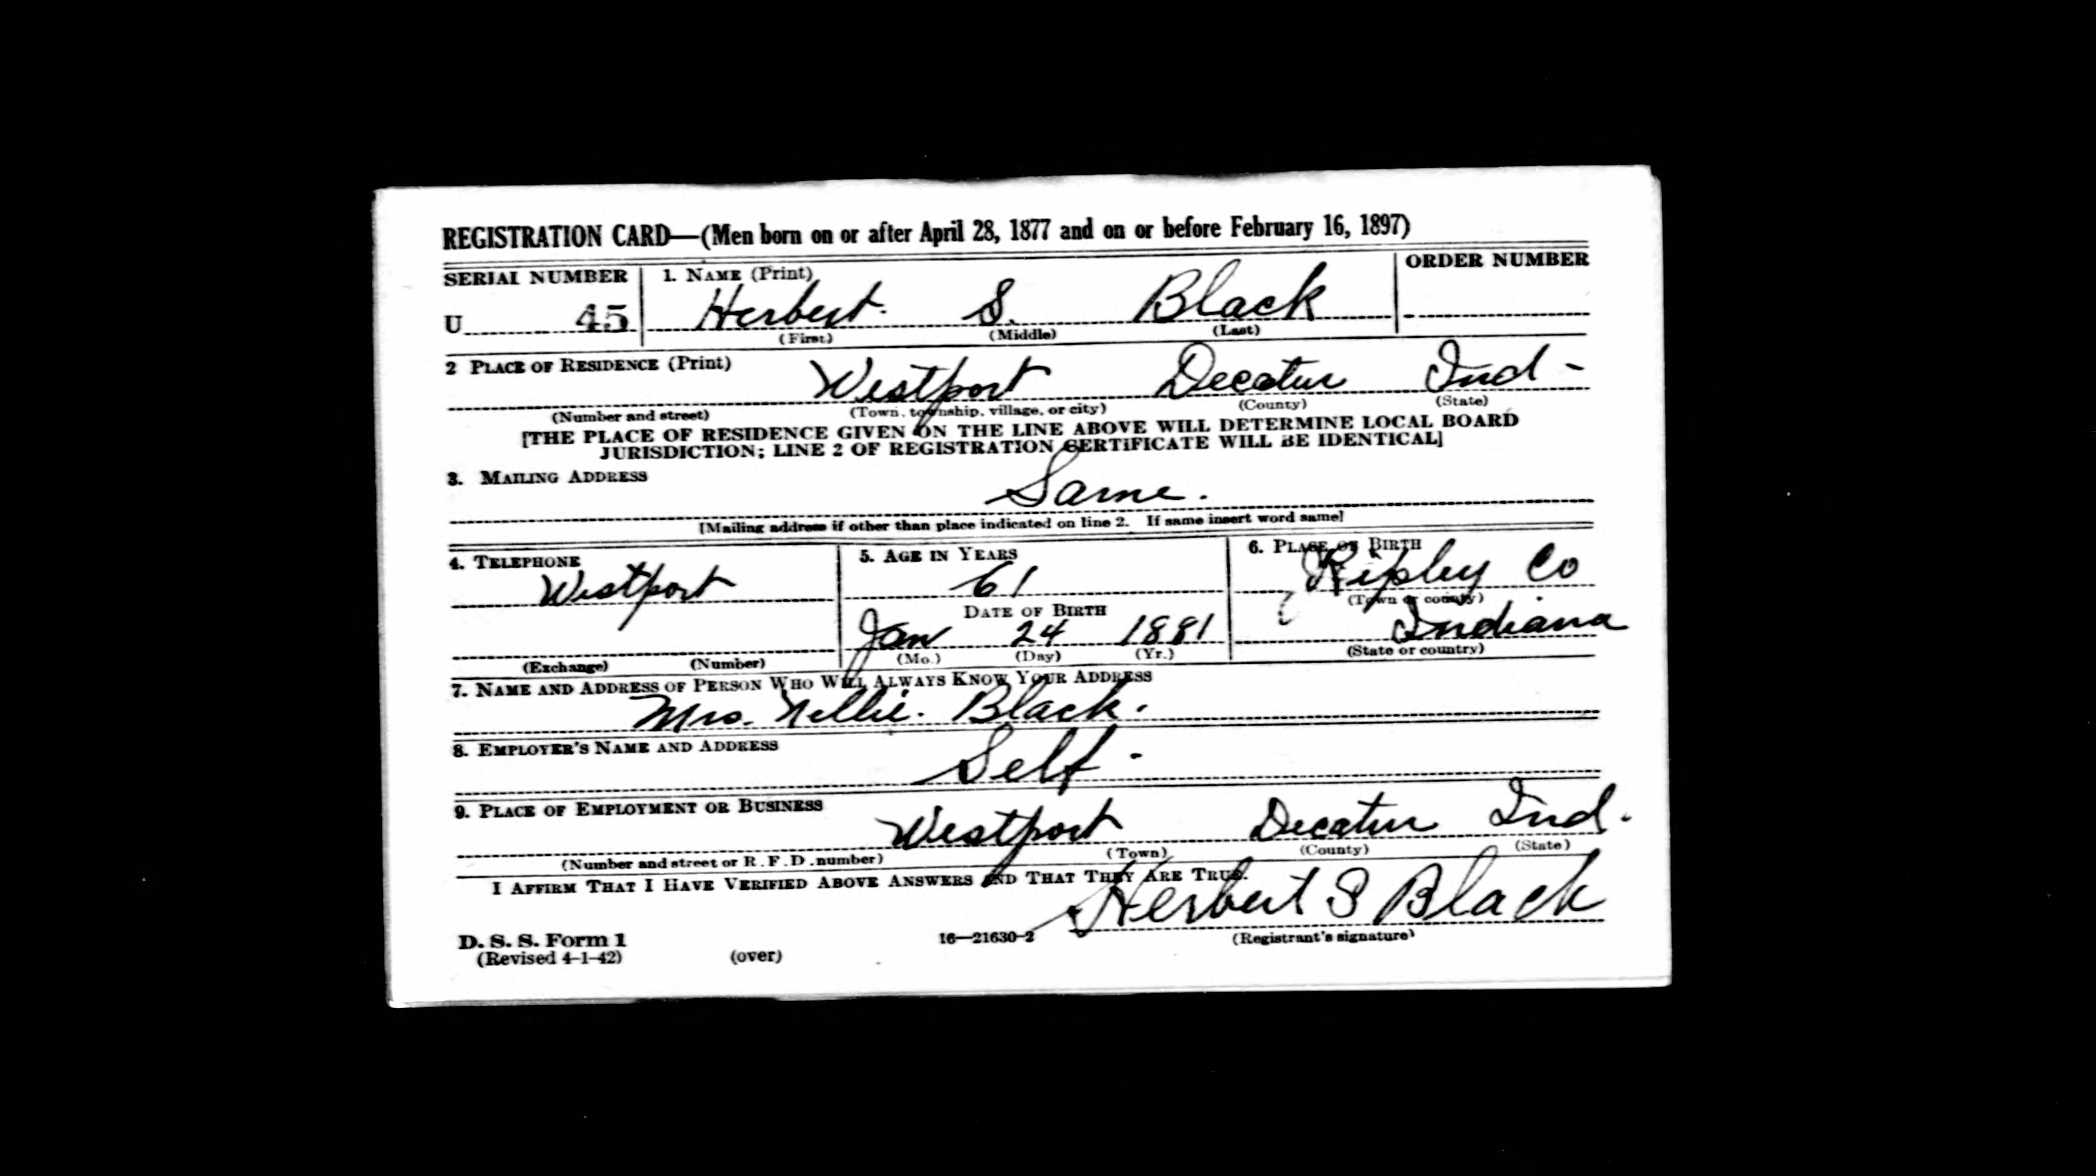 REGISTRATION CARD—(Men born on or after April 28, 1877 and on or before February 16, 1897)
SERIAL NUMBER 1. NAME (Print) ORDER NUMBER
U 45 Herbert S. Black
(First) (Middle) (Last)
2 PLACE OF RESIDENCE (Print)
Westport Decatur Ind -
(Number and street) (Town, township, village, or city) (County) (State)
[THE PLACE OF RESIDENCE GIVEN ON THE LINE ABOVE WILL DETERMINE LOCAL BOARD
JURISDICTION; LINE 2 OF REGISTRATION CERTIFICATE WILL BE IDENTICAL]
3. MAILING ADDRESS
Same.
[Mailing address if other than place indicated on line 2. If same insert word same]
4. TELEPHONE 5. AGE IN YEARS 6. PLACE OF BIRTH
Westport 61 Ripley Co
DATE OF BIRTH (Town or county)
Jan 24 1881 Indiana
(Exchange) (Number) (Mo.) (Day) (Yr.) (State or country)
7. NAME AND ADDRESS OF PERSON WHO WILL ALWAYS KNOW YOUR ADDRESS
Mrs. Nellie. Black.
8. EMPLOYER'S NAME AND ADDRESS
Self -
9. PLACE OF EMPLOYMENT OR BUSINESS
Westport Decatur Ind.
(Number and street or R.F.D. number) (Town) (County) (State)
I AFFIRM THAT I HAVE VERIFIED ABOVE ANSWERS AND THAT THEY ARE TRUE.
Herbert S Black
D. S. S. Form 1 16—21630-2 (Registrant's signature)
(Revised 4-1-42) (over)